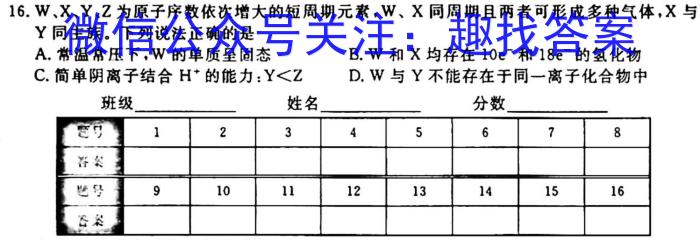 16. W、X、Y、Z为原子序数依次增大的短周期元素,W、X同周期且两者可形成多种气体,X与
Y同主族。下列说法正确的是
微信公众号关注:趣找答案
A. 常温常压下,W的单质呈固态 B. W和X均存在10e⁻和18e⁻的氢化物
C. 简单阴离子结合H⁺的能力:Y<Z D. W与Y不能存在于同一离子化合物中
班级 姓名 分数
题号 1 2 3 4 5 6 7 8
答案
题号 9 10 11 12 13 14 15 16
答案